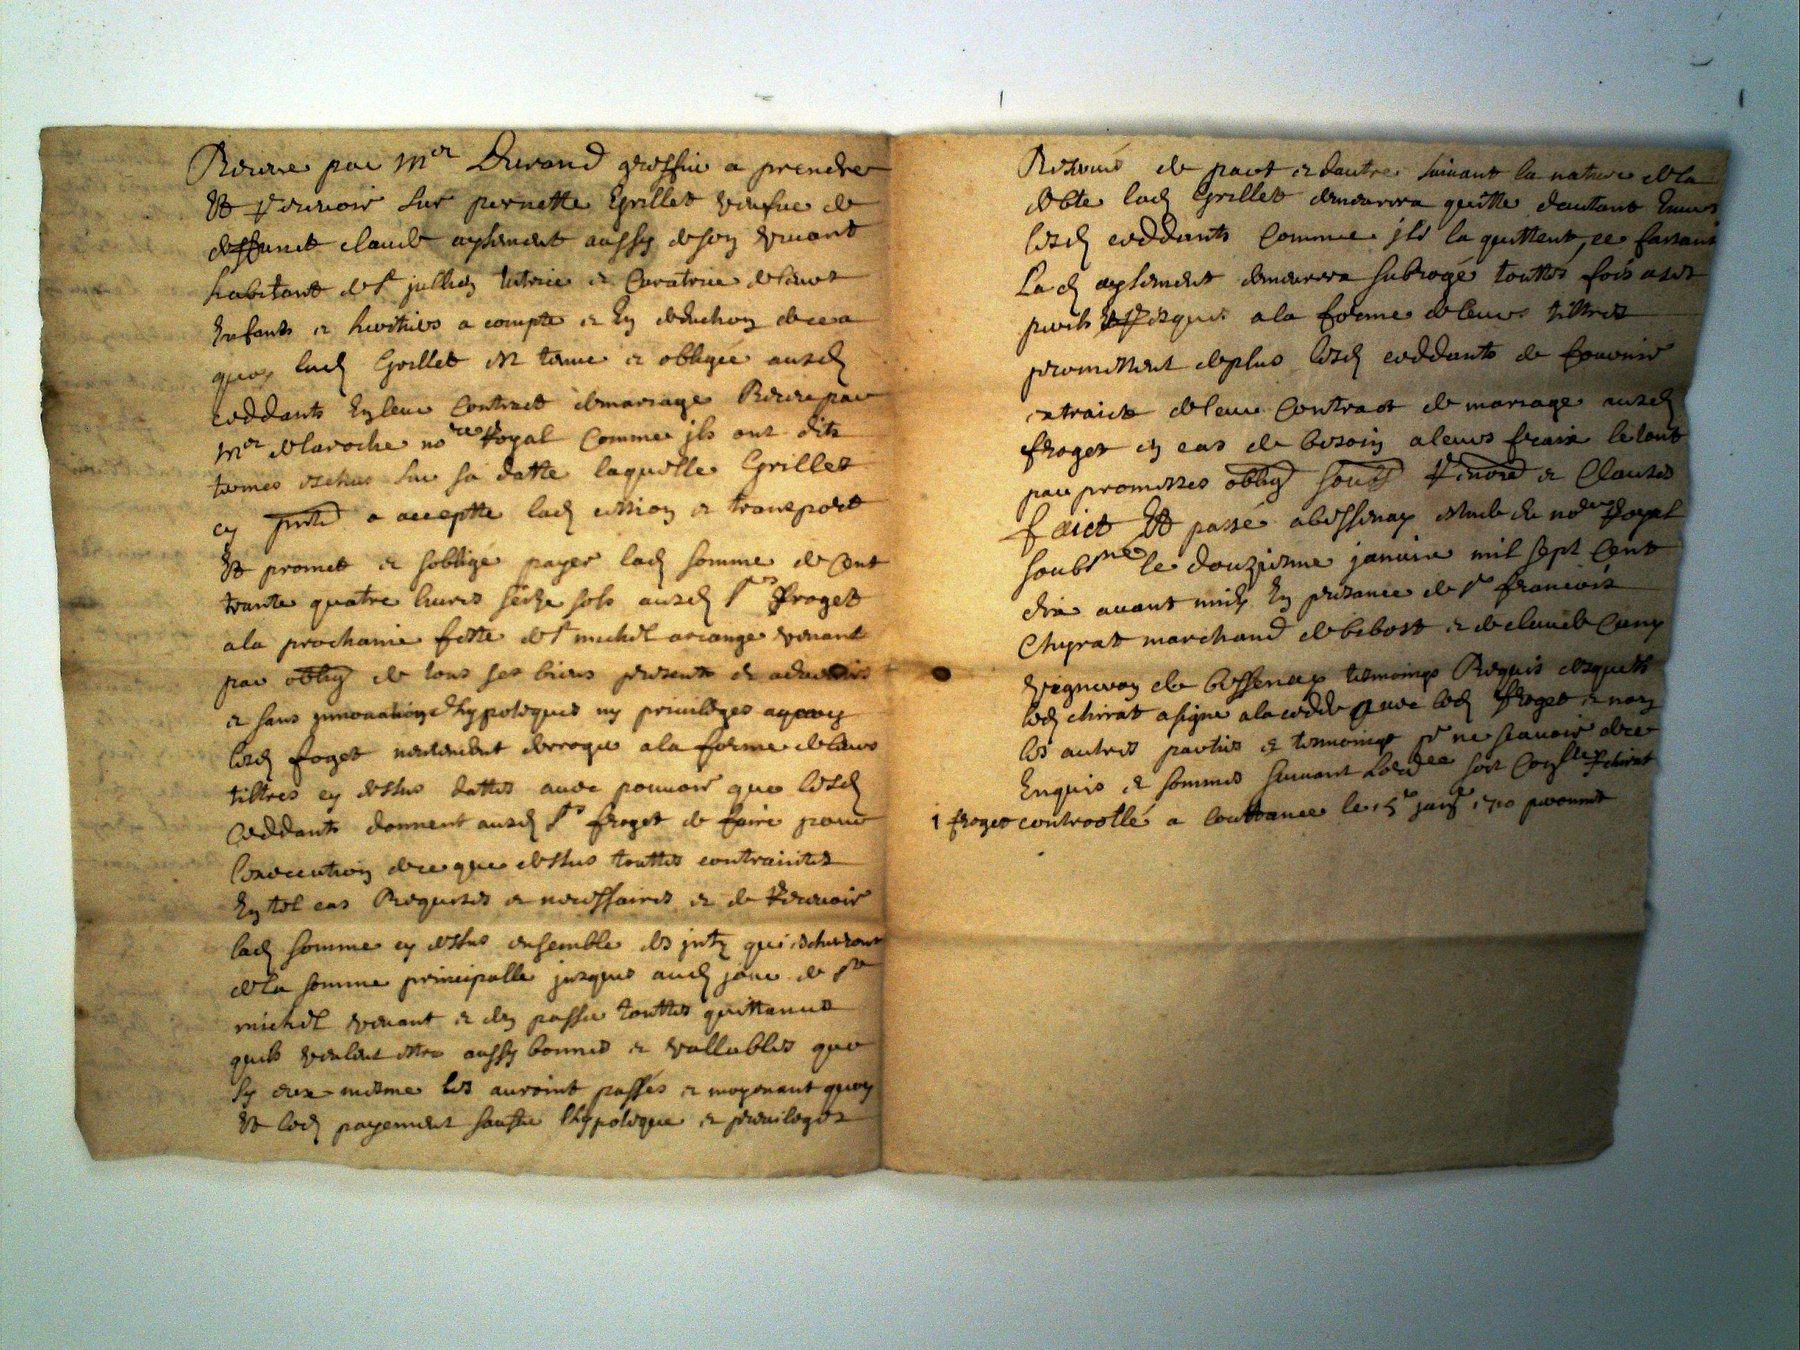 Receue par Mer Durand greffier a prendre
Et recevoir sur pernette Grillet veufue de
deffunct claude aplement aussy de son vivant
habitant de St jullien tutrice et Curatrice de leurs
Enfants et heritiers a compte et En deduction de ce a
quoy lad Grillet est tenue et obligée ausd
ceddants En leur Contract de mariage Receu par
Mer delaroche nore Royal Comme ils ont dit
termes escheus sur sa datte laquelle Grillet
cy pnte a acceptte lad cession et transport
Et promet et soblige payer lad somme de Cent
trante quatre livres seize sols ausd srs froget
a la prochaine feste de St michel arcange venant
par oblig de tous ses biens presents et advenirs
et sans innovation d'hypoteques ny privileges
lesd froget n'entendent derroger a la forme de leurs
tittres cy dessus dattes avec pouvoir que lesd
Ceddants donnent ausd srs froget de faire pour
l'execution de ce que dessus touttes contraintes
En tel cas Requises et necessaires et de recevoir
lad somme cy dessus ensemble des jntz qui escherront
de la somme principalle jusques aud jour de St
michel venant et d'en passer touttes quittances
quils veulent estre aussy bonnes et vallables que
sy eux mesme les auroint passés et moyenant quoy
Et led payement sauf hypoteque et privileges
Reservés de part et d'autre suivant la nature de la
debte lad Grillet demeurera quitte d'autant Envers
lesd ceddants Comme jls la quittent, ce faisant
Lad aplement demeurera subrogé touttes fois a ses
perils Et risques a la forme de leurs tittres
promettent de plus lesd ceddants de fournir
extraict de leur Contract de mariage ausd
froget en cas de besoin a leurs fraix le tout
par promesses oblig soub renon et Clauses
faict Et passé a bessenay estude du nore Royal
soubsne le douzieme janvier mil sept Cent
dix avant midy En presence de sr francois
Chyrat marchand de bibost et de claude
vigneron de bessenay temoings Requis desquels
led chirat a signe a la cedde avec led froget et non
les autres parties et temoings pr ne scavoir de ce
Enquis et sommes suivant Lordce
froget controollé a le 15e janv 1710